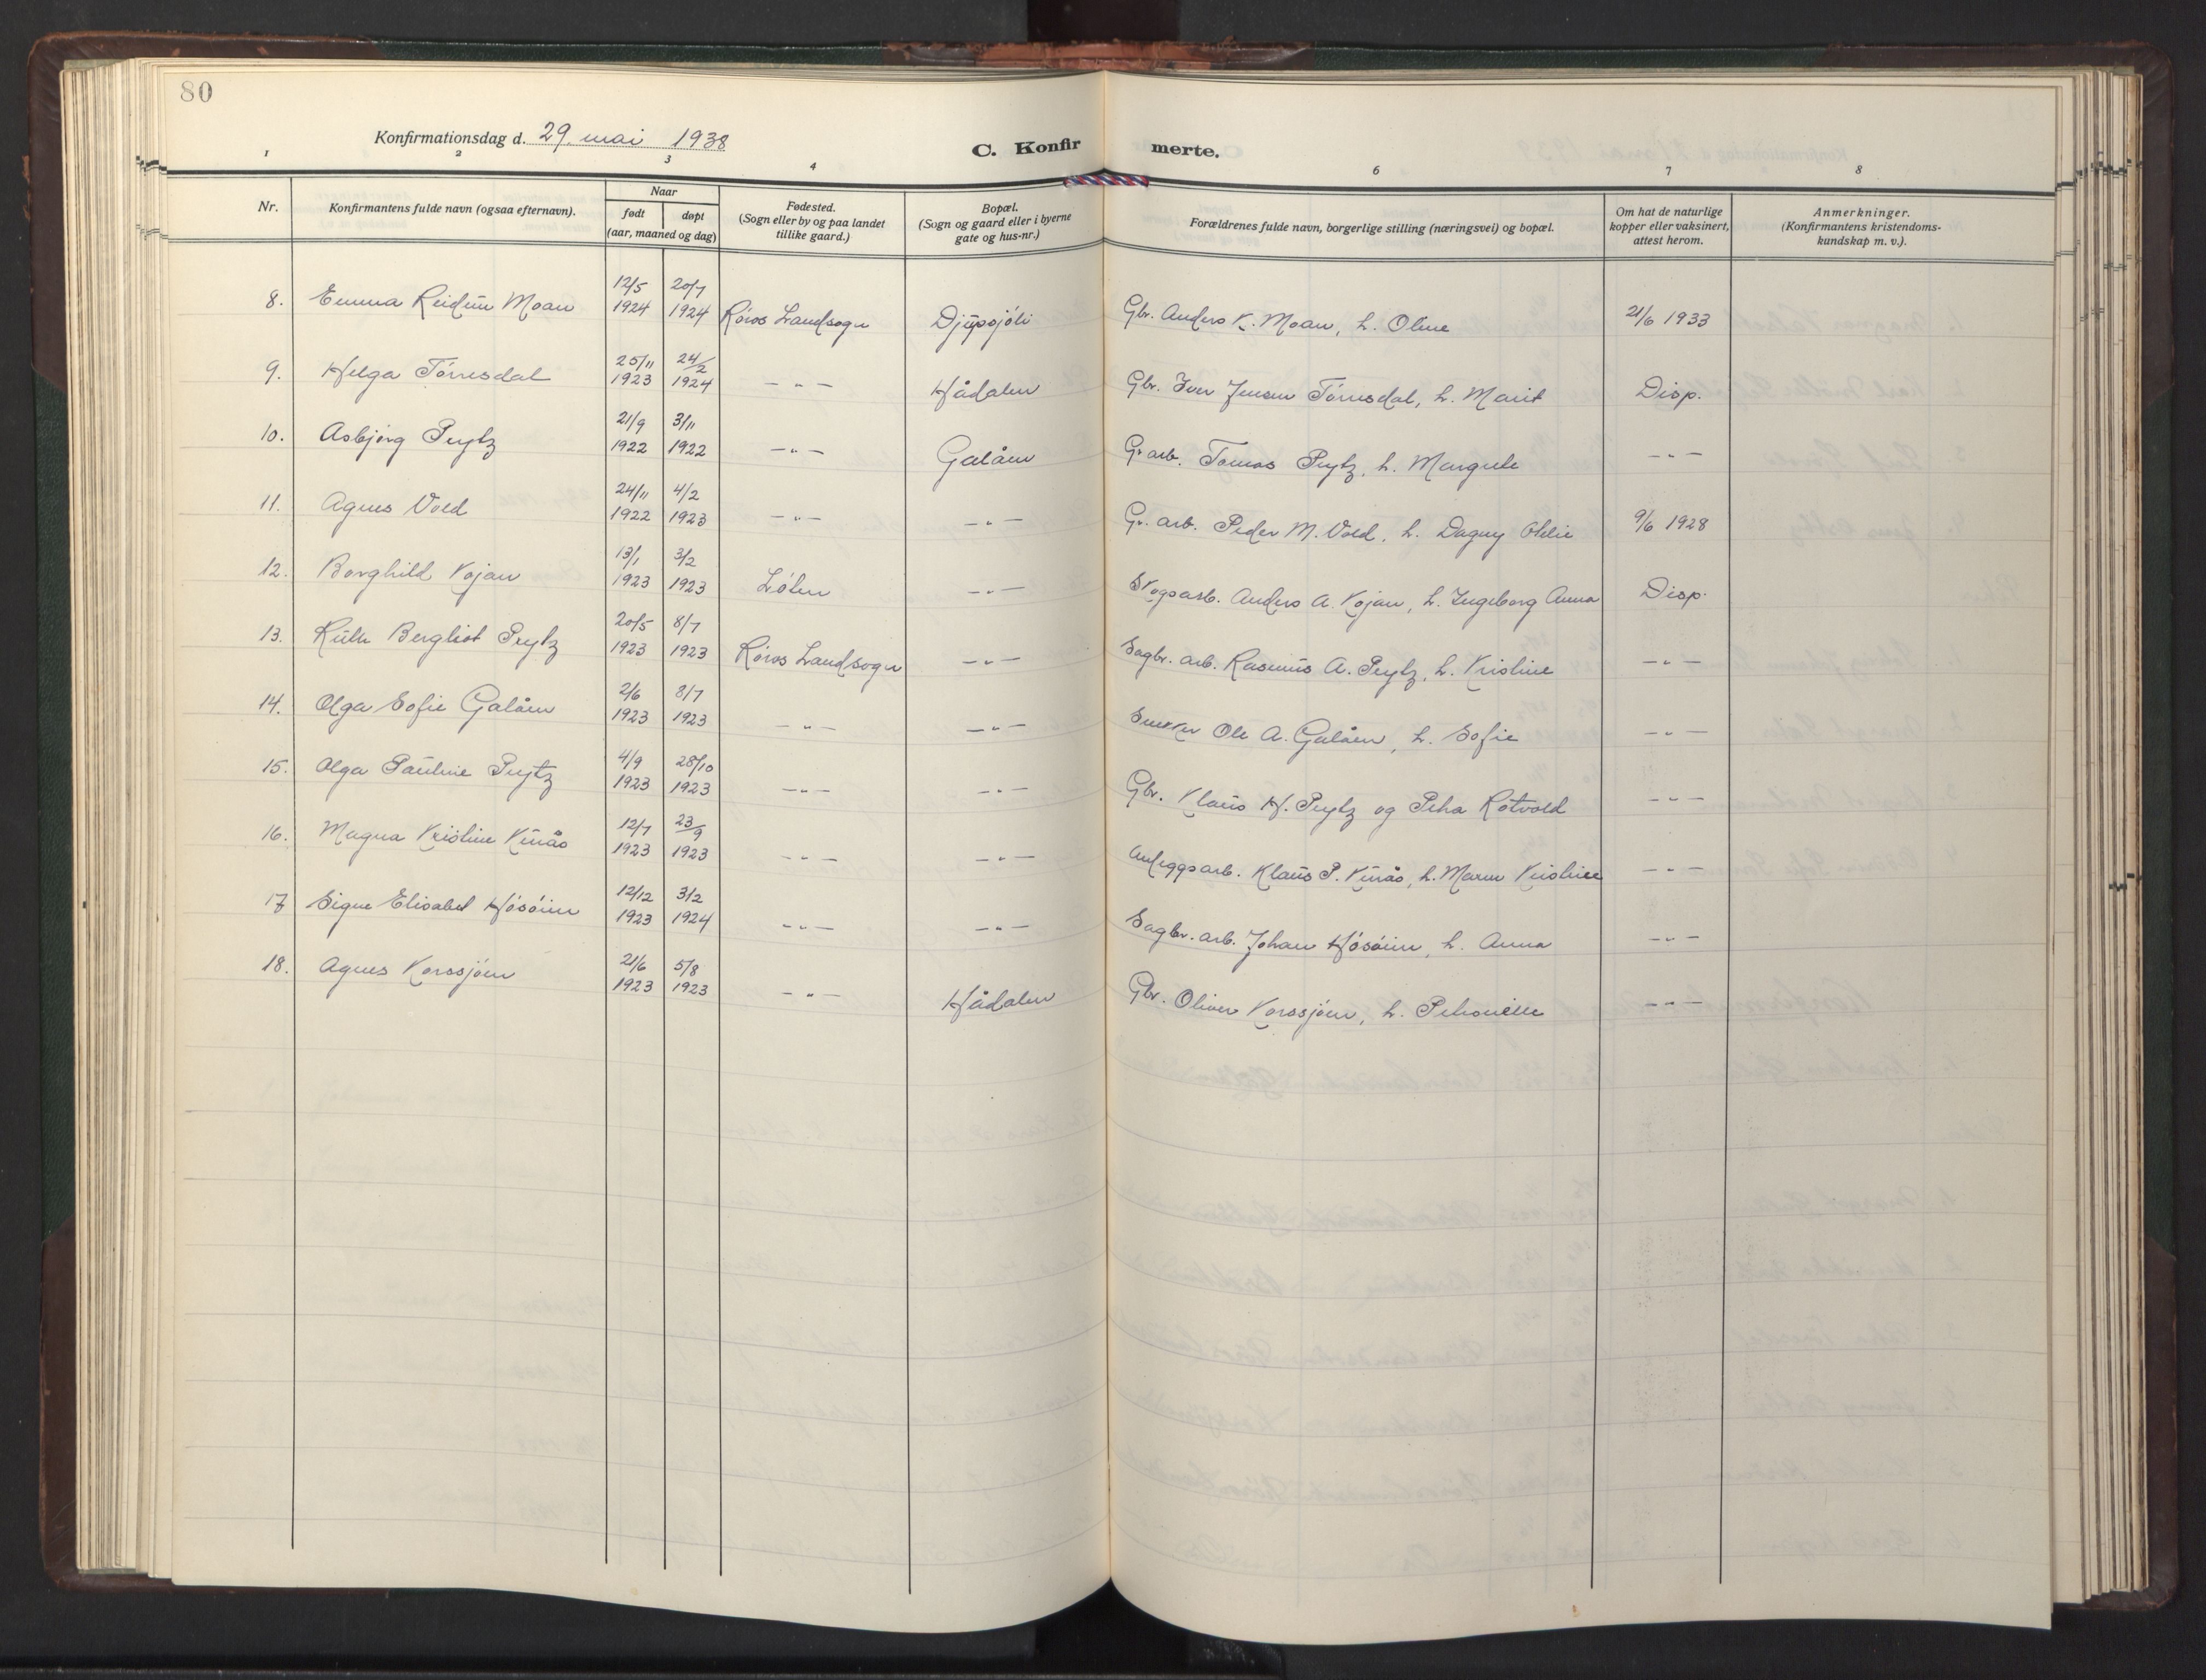 80
Konfirmationsdag d. 29. mai 1938
C. Konfirmerte.
1 2 3 4 6 7 8
Nr. Konfirmantens fulde navn (ogsaa efternavn). Naar født døpt (aar, maaned og dag) Fødested. (Sogn eller by og paa landet tillike gaard.) Bopæl. (Sogn og gaard eller i byerne gate og hus-nr.) Forældrenes fulde navn, borgerlige stilling (næringsvei) og bopæl. Om hat de naturlige kopper eller vaksinert, attest herom. Anmerkninger. (Konfirmantens kristendoms-kundskap m. v.).
8. Emma Reidun Moan 12/5 1924 20/7 1924 Røros Landsogn Djupsjöli Gbr. Anders K. Moan, h. Oline 21/6 1933
9. Helga Törresdal 25/11 1923 24/2 1924 -"- Hådalen Gbr. Iver Jensen Törresdal, h. Marit Disp.
10. Asbjørg Prytz 21/9 1922 3/11 1922 -"- Galåen Gr. arb. Tomas Prytz, h. Margrete -"-
11. Agnes Vold 24/11 1922 4/2 1923 -"- -"- Gr. arb. Peder M. Vold, h. Dagny Otelie 9/6 1928
12. Borghild Kojan 13/1 1923 3/2 1923 -"- Skogsarb. Anders A. Kojan, h. Ingeborg Anna Disp.
13. Ruth Bergliot Prytz 20/5 1923 8/7 1923 Røros Landsogn -"- Sagbr. arb. Rasmus A. Prytz, h. Kristine -"-
14. Olga Sofie Galåen 2/6 1923 8/7 1923 -"- -"- Snekker Ole A. Galåen, h. Sofie -"-
15. Olga Pauline Prytz 4/9 1923 28/10 1923 -"- -"- Gbr. Klaus H. Prytz og Petra Rotvold -"-
16. Magna Kristine Kurås 12/7 1923 23/9 1923 -"- -"- Anleggsarb. Klaus P. Kurås, h. Maren Kristine -"-
17 Signe Elisabet Hösöien 12/12 1923 3/2 1924 -"- -"- Sagbr. arb. Johan Hösöien, h. Anna -"-
18. Agnes Korssjöen 21/6 1923 5/8 1923 -"- Hådalen Gbr. Oliver Korssjöen, h. Petronelle -"-